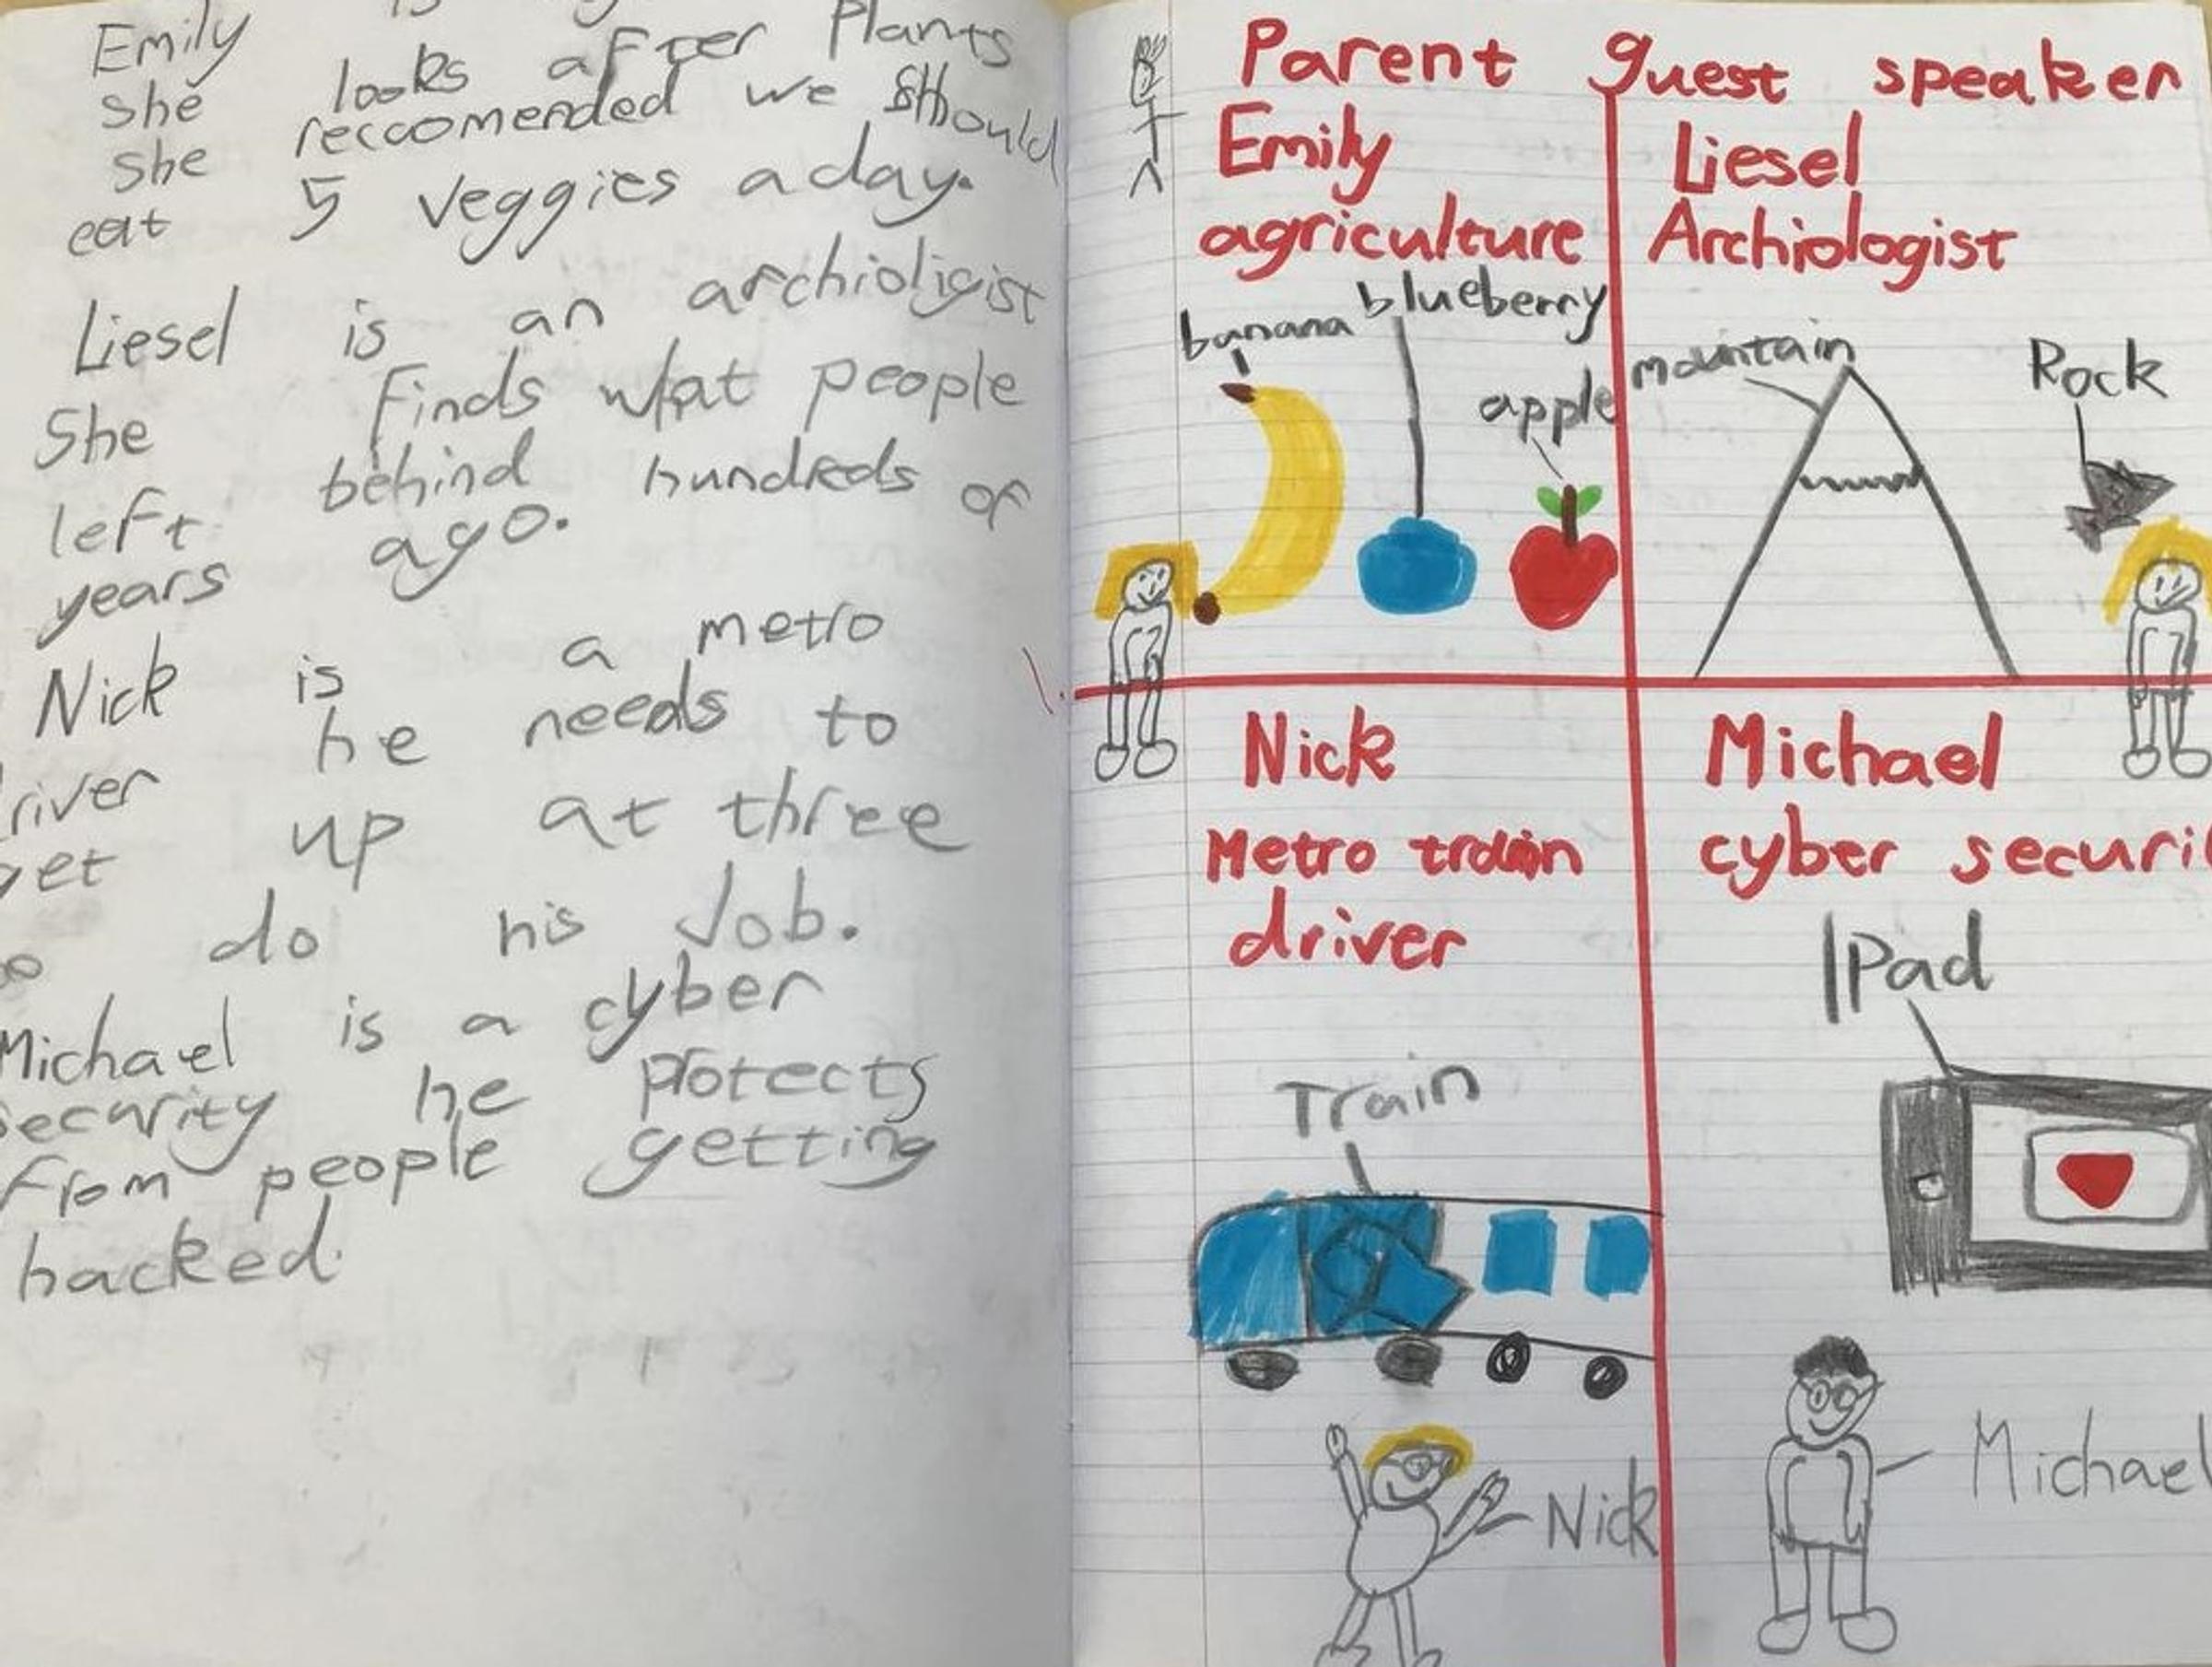 Emily is
she looks after Plants
she reccomended we should
eat 5 veggies a day.
Liesel is an archioligist
She finds what people
left behind hundreds of
years ago.
Nick is a metro
river he needs to
get up at three
do his Job.
Michael is a cyber
security he protects
from people getting
hacked.
Parent guest speaker
Emily
agriculture
banana
blueberry
apple
Liesel
Archiologist
mountain
Rock
Nick
Metro train
driver
Train
Nick
Michael
cyber securi
IPad
Michael